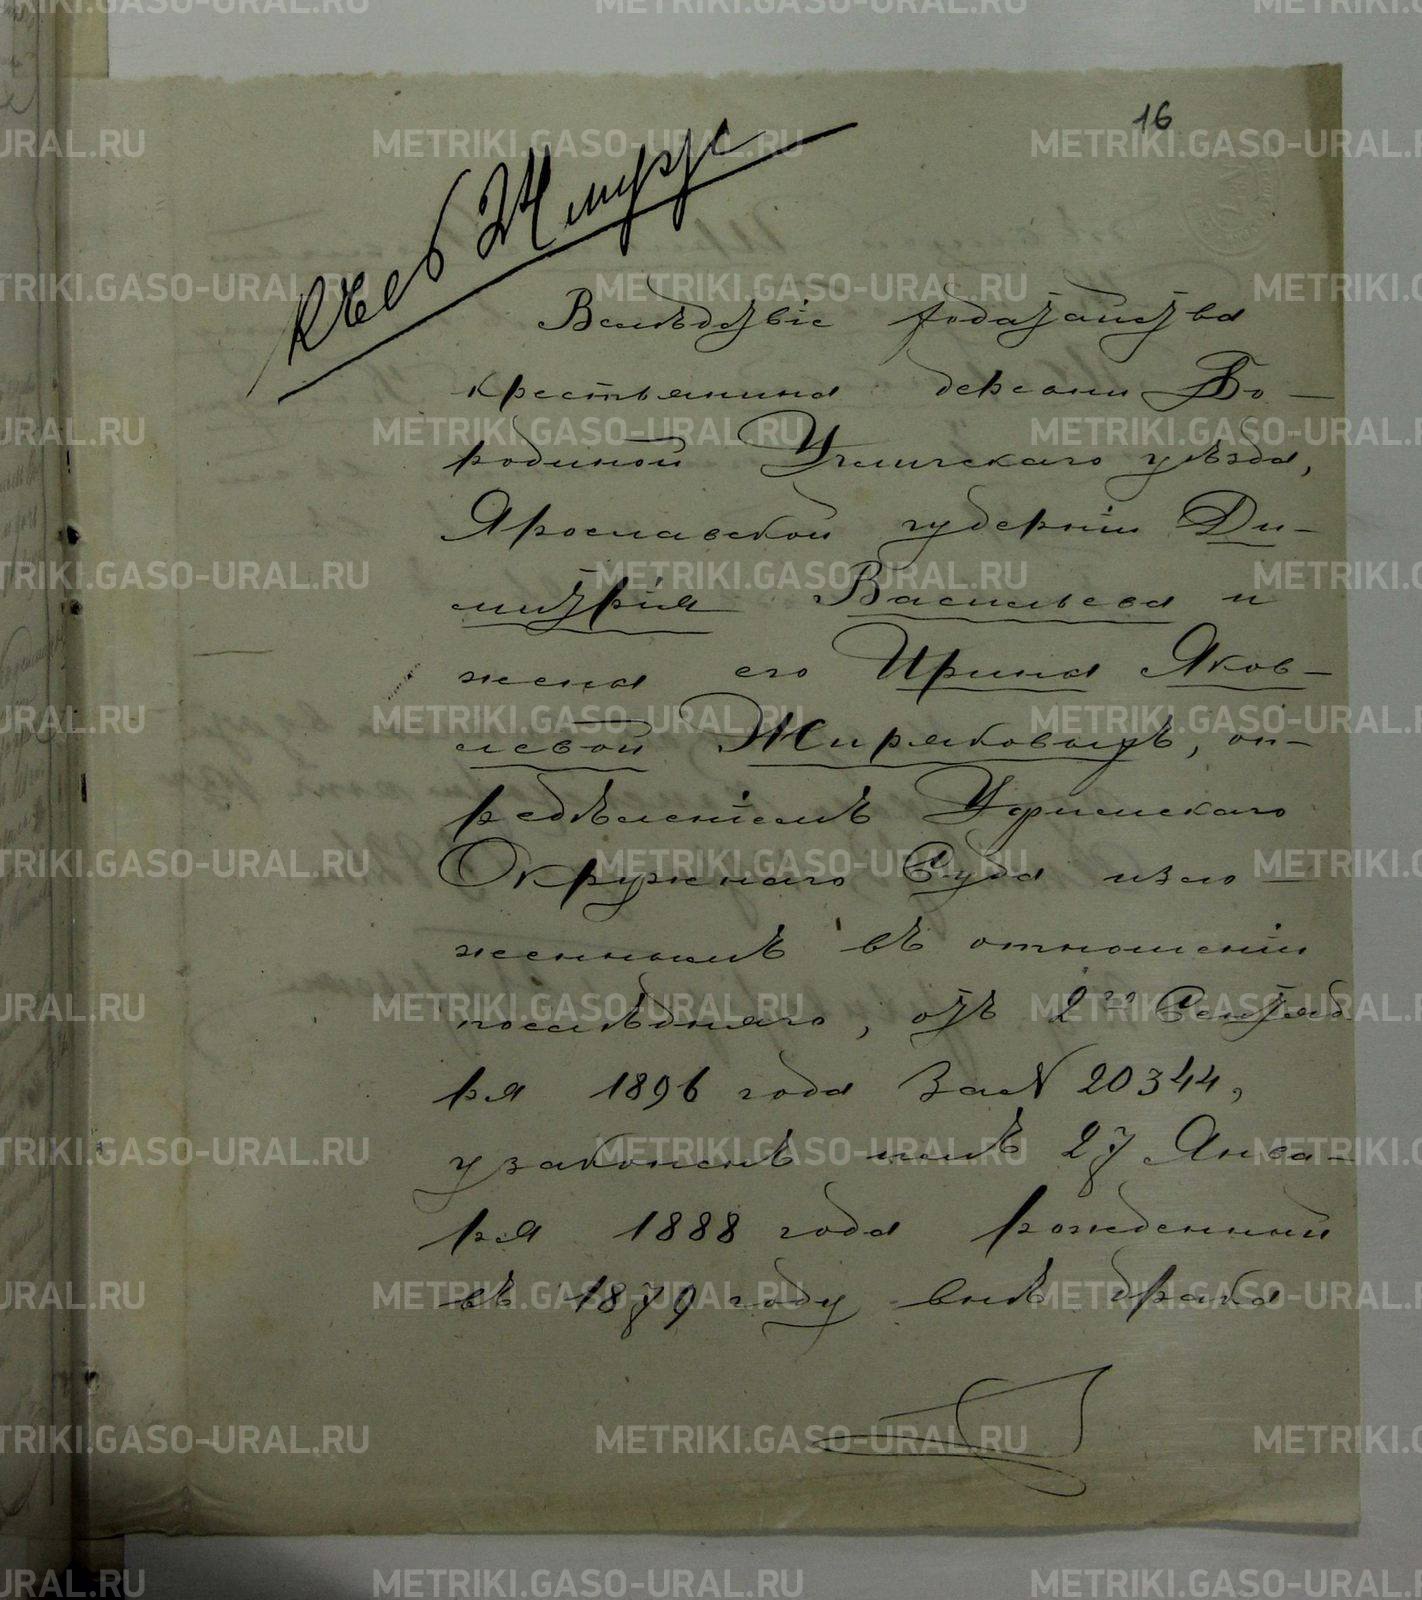 16
Вслѣдствіе ходатайства
крестьянина деревни Бо-
родиной Угличскаго уѣзда,
Ярославской губерніи Ди-
митрія Васильева и
жена его Ирина Яков-
левой Жиряковыхъ, оп-
редѣленіемъ Уфимскаго
Окружнаго Суда изло-
женнымъ въ отношеніи
послѣдняго, отъ 2го Сентяб
ря 1896 года за N 20344,
узаконенъ имъ 27 Янва-
ря 1888 года рожденный
въ 1879 году внѣ брака
METRIKI.GASO-URAL.RU